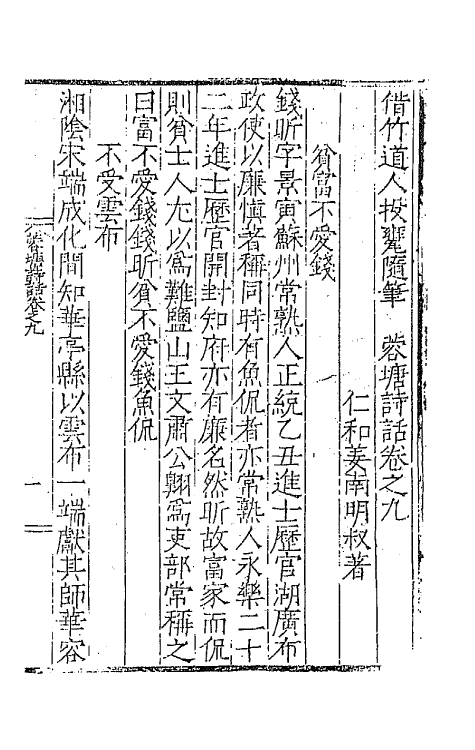 借竹道人投甕隨筆　蓉塘詩話卷之九
仁和姜南明叔著
貧富不愛錢
錢昕字景寅蘇州常熟人正統乙丑進士歷官湖廣布
政使以廉慎著稱同時有魚侃者亦常熟人永樂二十
二年進士歷官開封知府亦有廉名然昕故富家而侃
則貧士人尤以爲難鹽山王文肅公翺爲吏部常稱之
曰富不愛錢錢昕貧不愛錢魚侃
不受雲布
湘陰宋端成化間知華亭縣以雲布一端獻其師華容
蓉塘詩話卷之九
一